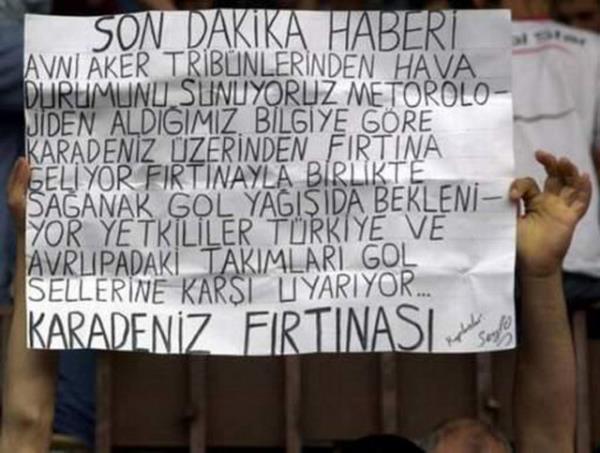 SON DAKİKA HABERİ
AVNİ AKER TRİBÜNLERİNDEN HAVA
DURUMUNU SUNUYORUZ METOROLO-
JİDEN ALDIĞIMIZ BİLGİYE GÖRE
KARADENİZ ÜZERİNDEN FIRTINA
GELİYOR FIRTINAYLA BİRLİKTE
SAĞANAK GOL YAĞIŞIDA BEKLENİ-
YOR YETKİLİLER TÜRKİYE VE
AVRUPADAKİ TAKIMLARI GOL
SELLERİNE KARŞI UYARIYOR...
KARADENİZ FIRTINASI